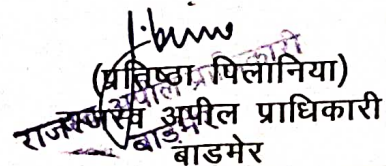 (प्रतिष्ठा पिलानिया)
राजस्व अपील प्राधिकारी
बाडमेर
राजस्व अपील प्राधिकारी
बाडमेर